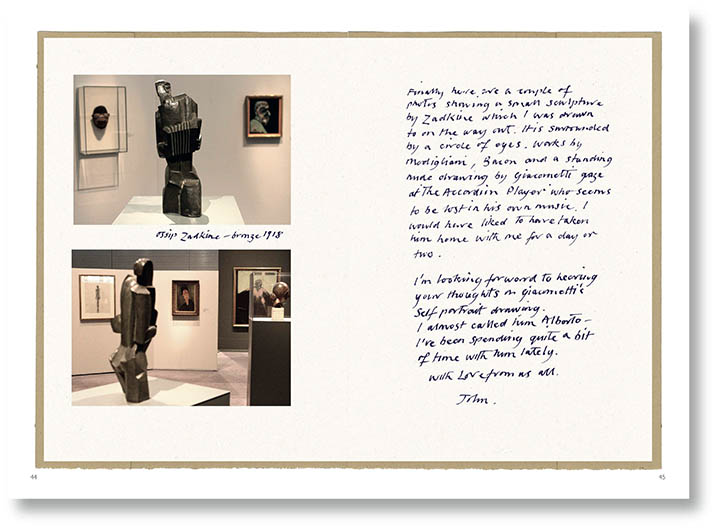 ossip Zadkine – bronze 1918
Finally here are a couple of
photos showing a small sculpture
by Zadkine which I was drawn
to on the way out. It is surrounded
by a circle of eyes. Works by
Modigliani, Bacon and a standing
nude drawing by Giacometti gaze
at 'The Accordion Player' who seems
to be lost in his own music. I
would have liked to have taken
him home with me for a day or
two.
I'm looking forward to hearing
your thoughts on Giacometti's
self portrait drawing.
I almost called him Alberto –
I've been spending quite a bit
of time with him lately.
With Love from us all.
John.
44
45